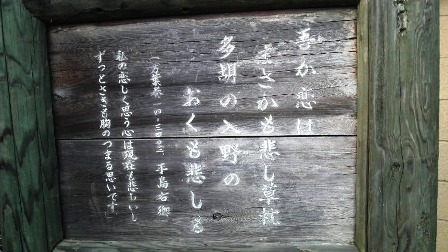 吾が恋は
まさかも悲し草枕
多胡の入野の
おくも悲しも
(万葉巻一四・三四〇三) 手島右卿
「私の恋しく思う心は現在も悲しいし
ずっとさきも胸のつまる思いです」